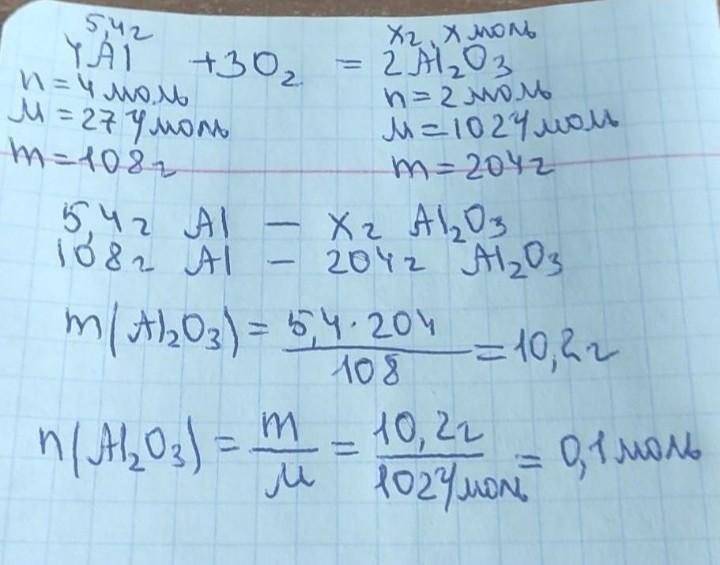 5,4г хг, х моль
4Al + 3O₂ = 2Al₂O₃
n = 4 моль n = 2 моль
M = 27 г/моль M = 102 г/моль
m = 108 г m = 204 г
5,4 г Al — х г Al₂O₃
108 г Al — 204 г Al₂O₃
m(Al₂O₃) = 5,4 · 204 / 108 = 10,2 г
n(Al₂O₃) = m / M = 10,2 г / 102 г/моль = 0,1 моль